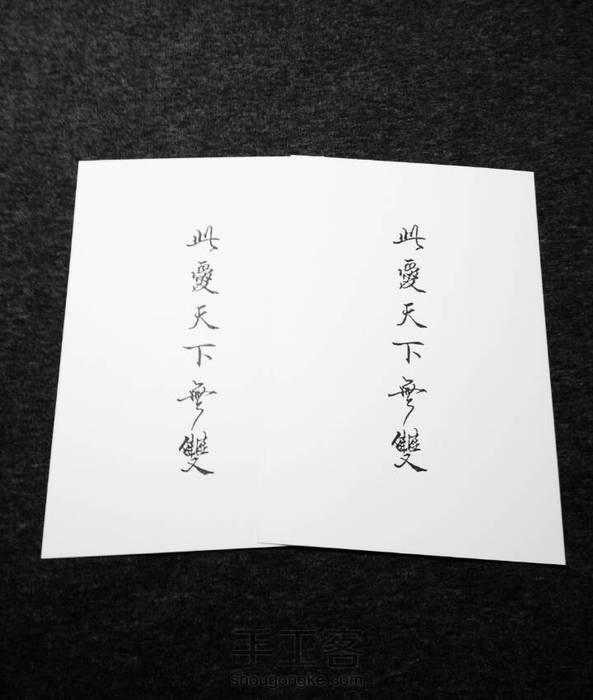 此愛天下無雙
此愛天下無雙
手工客
shougongke.com